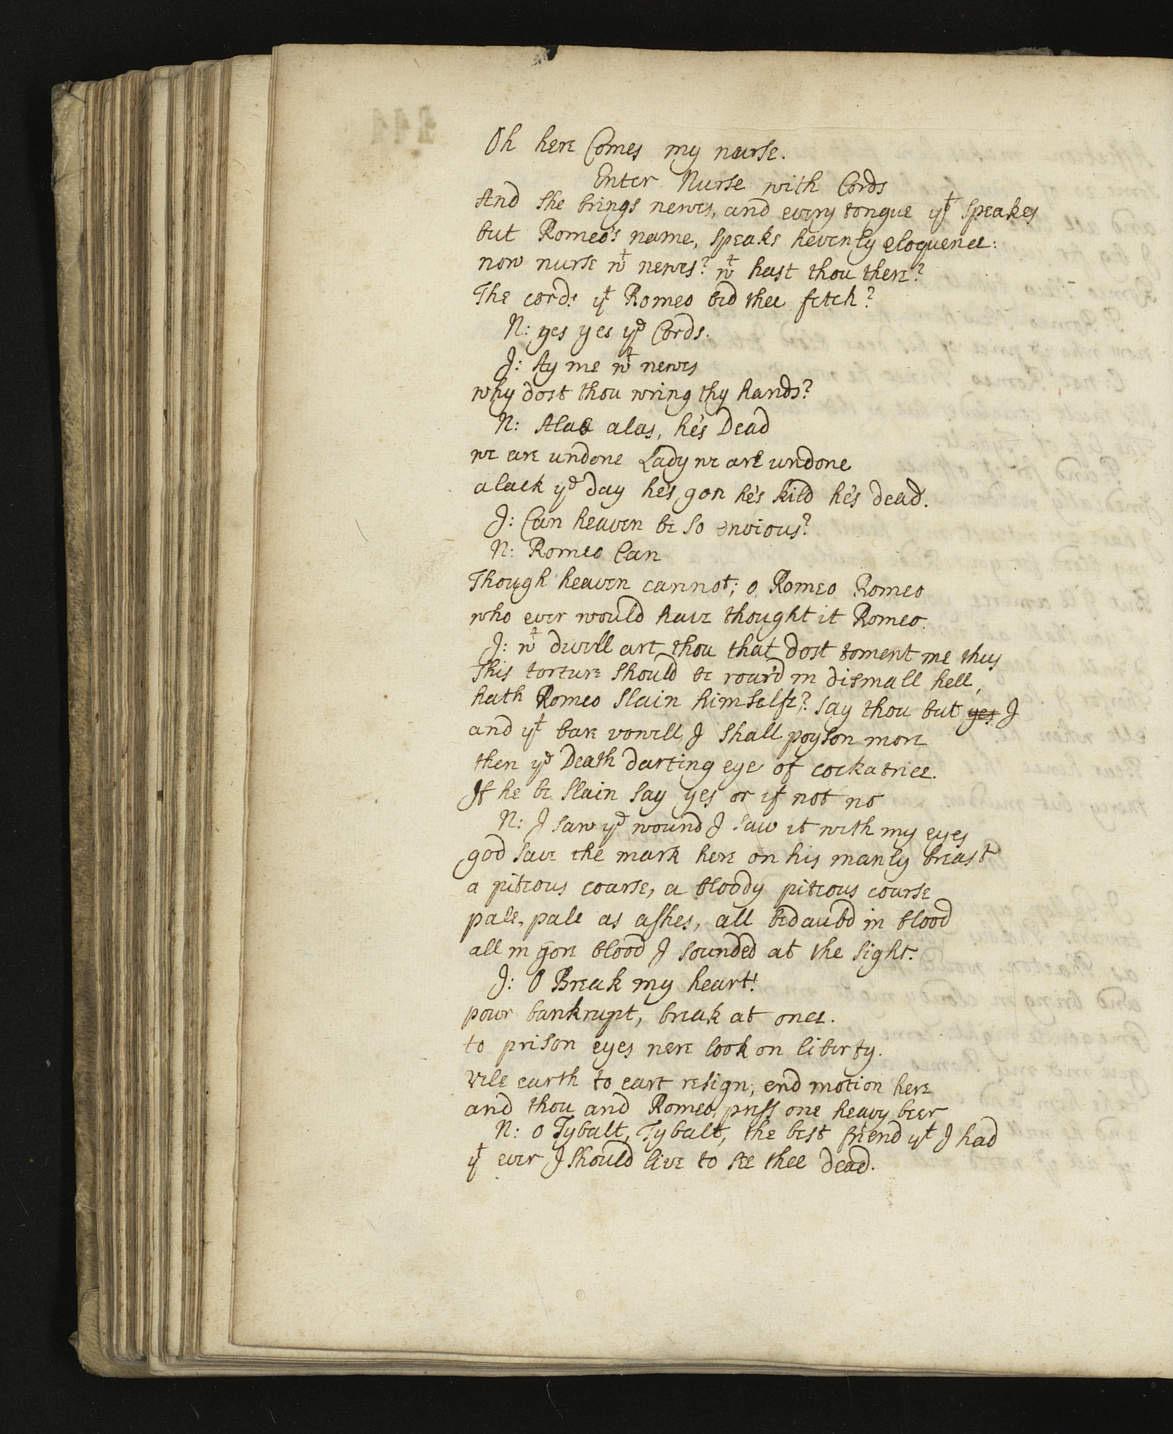 Oh here Comes my nurse.
Enter Nurse with Cords
And she brings newes, and every tongue yt speakes
but Romeo's name, speaks hevenly eloquence:
now nurse wt newes? wt hast thou there?
The cords yt Romeo bid thee fetch?
N: yes yes ye Cords.
J: Ay me wt newes
why dost thou wring thy hands?
N: Alas alas, he's Dead
we are undone Lady we are undone
alack ye day he's gon he's kild he's dead.
J: Can heaven be so envious?
N: Romeo Can
Though heaven cannot; o Romeo Romeo
who ever would have thought it Romeo.
J: wt divell art thou that dost toment me thus
This torture should be roar'd in dismall hell,
hath Romeo slain himselfe? say thou but yes I
and yt bare vowell I shall poyson more
then ye Death darting eye of cockatrice.
If he be slain say yes or if not no
N: I saw ye wound I saw it with my eyes
god save the mark here on his manly breast
a piteous coarse, a bloody piteous course
pale, pale as ashes, all bedaubd in blood
all in gore blood I sounded at the sight.
J: O Break my heart!
pour bankrupt, break at once.
to prison eyes nere look on liberty.
vile earth to eart resign, end motion here
and thou and Romeo, press one heavy beer
N: o Tybalt, Tybalt, the best friend yt I had
yt ever I should live to see thee dead.